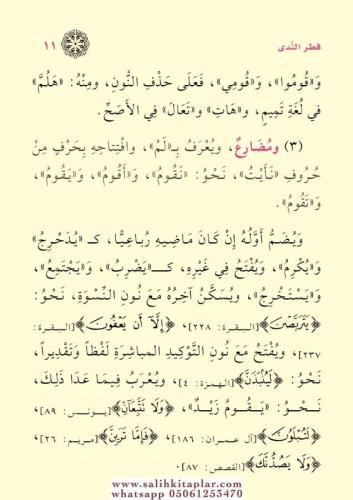 قطر النَّدى
١١
وَ«قُومُوا»، وَ«قُومِي»، فَعَلَى حَذْفِ النُّونِ، ومِنْهُ: «هَلُمَّ»
في لُغَةِ تَمِيمٍ، و«هَاتِ» و«تَعَالَ» فِي الأَصَحِّ.
(٣) ومُضَارِعٌ، ويُعْرَفُ بِـ«لَمْ»، وافْتِتاحِهِ بِحَرْفٍ مِنْ
حُرُوفِ «نَأَيْتُ»، نَحْوُ: «نَقُومُ»، وَ«أَقُومُ»، وَ«يَقُومُ»،
وَ«تَقُومُ».
وَيُضَمُّ أَوَّلُهُ إِنْ كَانَ مَاضِيهِ رُباعِيًّا، كَـ «يُدَحْرِجُ»
وَ«يُكْرِمُ»، وَيُفْتَحُ فِي غَيْرِهِ، كَـ«يَضْرِبُ»، وَ«يَجْتَمِعُ»،
وَ«يَسْتَخْرِجُ»، وَيُسَكَّنُ آخِرُهُ مَعَ نُونِ النِّسْوَةِ، نَحْوُ:
﴿يَتَرَبَّصْنَ﴾ [البقرة: ٢٢٨]، ﴿إِلَّآ أَن يَعْفُونَ﴾ [البقرة:
٢٣٧]، ويُفْتَحُ مَعَ نُونِ التَّوْكِيدِ المباشِرَةِ لَفْظاً وَتَقْدِيراً،
نَحْوُ: ﴿لَيُنۢبَذَنَّ﴾ [الهمزة: ٤]، ويُعْرَبُ فِيمَا عَدَا ذَلِكَ،
نَحْوُ: «يَقُومُ زَيْدٌ»، ﴿وَلَا تَتَّبِعَآنِّ﴾ [يونس: ٨٩]،
﴿لَتُبْلَوُنَّ﴾ [آل عمران: ١٨٦]، ﴿فَإِمَّا تَرَيِنَّ﴾ [مريم: ٢٦]،
﴿وَلَا يَصُدُّنَّكَ﴾ [القصص: ٨٧].
www.salihkitaplar.com
whatsapp 05061253470